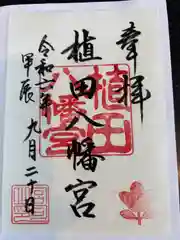 奉拝
植田八幡宮
令和六年
甲辰
九月二十日
植田
八幡宮